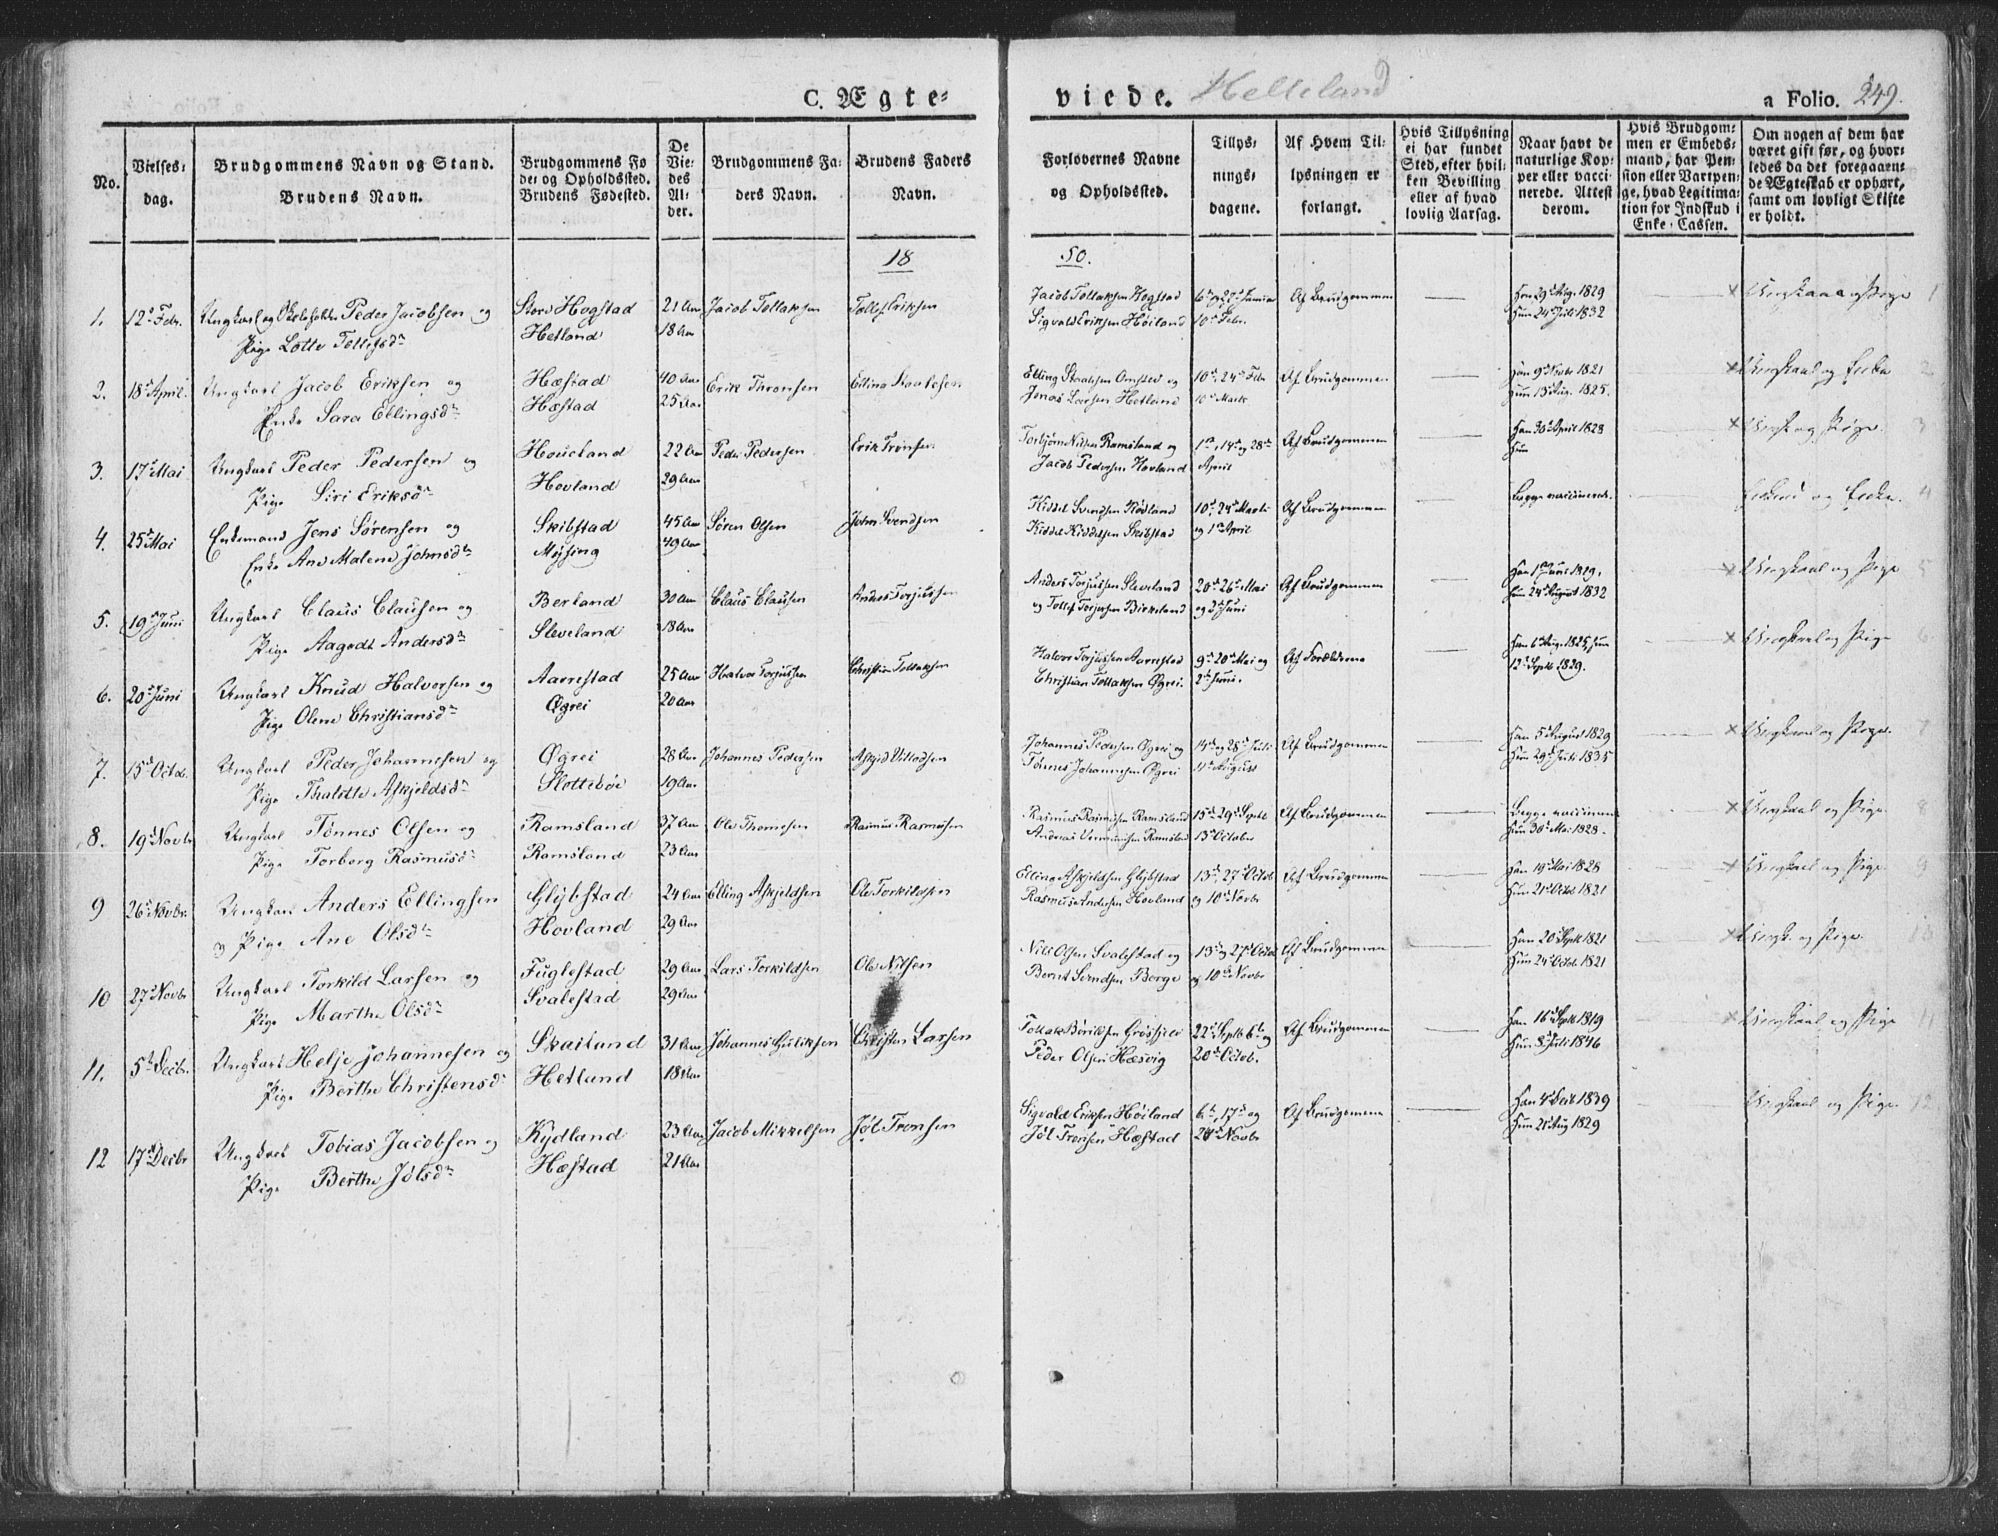 C. Ægte-
viede. Helleland
a Folio. 249.
No.
Vielses-
dag.
Brudgommens Navn og Stand.
Brudens Navn.
Brudgommens Fø
de- og Opholdssted.
Brudens Fødested.
De
Vie-
des
Al-
der.
Brudgommens Fa-
ders Navn.
Brudens Faders
Navn.
Forlovernes Navne
og Opholdssted.
Tillys-
nings-
dagene.
Af Hvem Til-
lysningen er
forlangt.
Hvis Tillysning
ei har fundet
Sted, efter hvil-
ken Bevilling
eller af hvad
lovlig Aarsag.
Naar havt de
naturlige Kop-
per eller vacci-
nerede. Attest
derom.
Hvis Brudgom-
men er Embeds-
mand, har Pen-
sion eller Vartpen-
ge, hvad Legitima-
tion for Indskud i
Enke-Cassen.
Om nogen af dem har
været gift før, og hvor-
ledes da det foregaaen-
de Ægteskab er ophørt,
samt om lovligt Skifte
er holdt.
18 50.
1. 12te Febr. Ungkarl og Peder Jacobsen og Store Hogstad 21 Aar Jacob Tollaksen Tollef Eriksen Jacob Tollaksen Hogstad Af Brudgommen Han 29de Aug. 1829 × Ungkarl og Pige 1
Pige Lotte Tollefsdr Hetland 18 Aar Sigvald Eriksen Høiland 10de Febr. Hun 24de Juli 1832
2. 18de April. Ungkarl Jacob Eriksen og Hæstad 40 Aar Erik Thronsen Elling Staalesen Elling Staalesen og 10de, 24de Febr Af Brudgommen Han 9de Novbr 1821 × Ungkarl og Enke 2
Enke Sara Ellingsdr Hæstad 25 Aar Jonas Larsen Hetland 10de Marts Hun 13de Aug. 1825.
3. 17de Mai Ungkarl Peder Pedersen og Houeland 22 Aar Peder Pedersen Erik Tronsen Torbjørn Nilsen Ramsland og 1ste, 14de og 28de Af Brudgommen Han 30te April 1828 × Ungk. og Pige. 3
Pige Siri Eriksdr Hovland 29 Aar Jacob Pedersen Hovland April Hun
4. 25de Mai Enkemand Jens Sørensen og Skibstad 45 Aar Søren Olsen John Svendsen Kiddel Svendsen Rødland 10de, 24de Marts Af Brudgommen Begge vaccinerede. og Enke. 4
Enke Ane Malene Johnsdr Mysing 49 Aar Kiddel Kiddelsen Skibstad og 1ste April
5. 19de Juni Ungkarl Claus Clausen og Berland 30 Aar Claus Clausen Anders Torjussen Anders Torjussen Sleveland 20de 26de Mai Af Brudgommen Han 1ste Juni 1829. × Ungkarl og Pige 5
Pige Aagodt Andersdr Sleveland 18 Aar og Tollef Torjersen Birkeland og 2den Juni Hun 24de August 1832
6. 20de Juni Ungkarl Knud Halvorsen og Aarrestad 25 Aar Halvor Torjussen Christian Tollaksen Halvor Torjussen Aarrestad 9de 20de Mai og Af Forældrene Han 6te Aug. 1825, Hun × Ungkarl og Pige 6
Pige Olene Christiansdr Øgrei 20 Aar Christian Tollaksen Øgrei. 2den Juni. 12te Septb 1829.
7. 15de Octbr. Ungkarl Peder Johannesen og Øgrei 28 Aar Johannes Pedersen Johannes Pedersen Øgrei og 14de og 28de Juli Af Brudgommen Han 5te August 1829 × Ungkarl og Pige. 7
Pige Askjeldsdr Slottebøe 19 Aar Tønnes Johannesen Øgrei 11te August Hun 29de Juli 1835
8. 19de Novbr Ungkarl Tønnes Olsen og Ramsland 37 Aar Ole Rasmus Rasmusen Rasmus Rasmusen Ramsland 15de 29de Septb Af Brudgommen Begge × Ungkarl og Pige. 8
Pige Torborg Rasmusdr Ramsland 23 Aar Andreas Ramsland 13de October Hun 30te Mai 1829.
9 26de Novbr. Ungkarl Anders Ellingsen Glybstad 24 Aar Elling Askjeldsen Ole Torkildsen Elling Askjeldsen Glybstad 13de, 27de Octbr Af Brudgommen Han 19de Mai 1828 × Ungkarl og Pige. 9
og Pige Ane Olsdr Hovland 29 Aar Rasmus Andersen Hovland og 10de Novbr Hun 21de Octbr 1821
10 27de Novbr Ungkarl Torkild Larsen og Fuglestad 29 Aar Lars Torkildsen Ole Nilsen Nils Olsen Svalestad og 13de og 27de Octbr Af Brudgommen Han 20de Septb 1821 × Ungk. og Pige. 10
Pige Marthe Olsdr Svalestad 29 Aar Bernt Svendsen Berge og 10de Novbr Hun 24de Octbr 1821
11. 5te Decbr. Ungkarl Helje Johannesen og Skailand 31 Aar Johannes Guliksen Christen Larsen Tollak 22de Septb 6te og Af Brudgommen Han 16de Septb 1819 × Ungkarl og Pige 11
Pige Berthe Christensdr Hetland 18 Aar Peder Olsen Hæsvig 20de Octob. Hun 8de Juli 1846
12 17de Decbr Ungkarl Tobias Jacobsen og Kydland 23 Aar Jacob Mikkelsen Jøl Tronsen Sigvald Eriksen Høiland 6te, 17de og Af Brudgommen Han 4de Decbr 1839 Ungkarl og Pige. 12
Pige Berthe Jølsdr Hæstad 21 Aar Jøl Tronsen Hæstad 24de Novbr Hun 21de Aug 1829